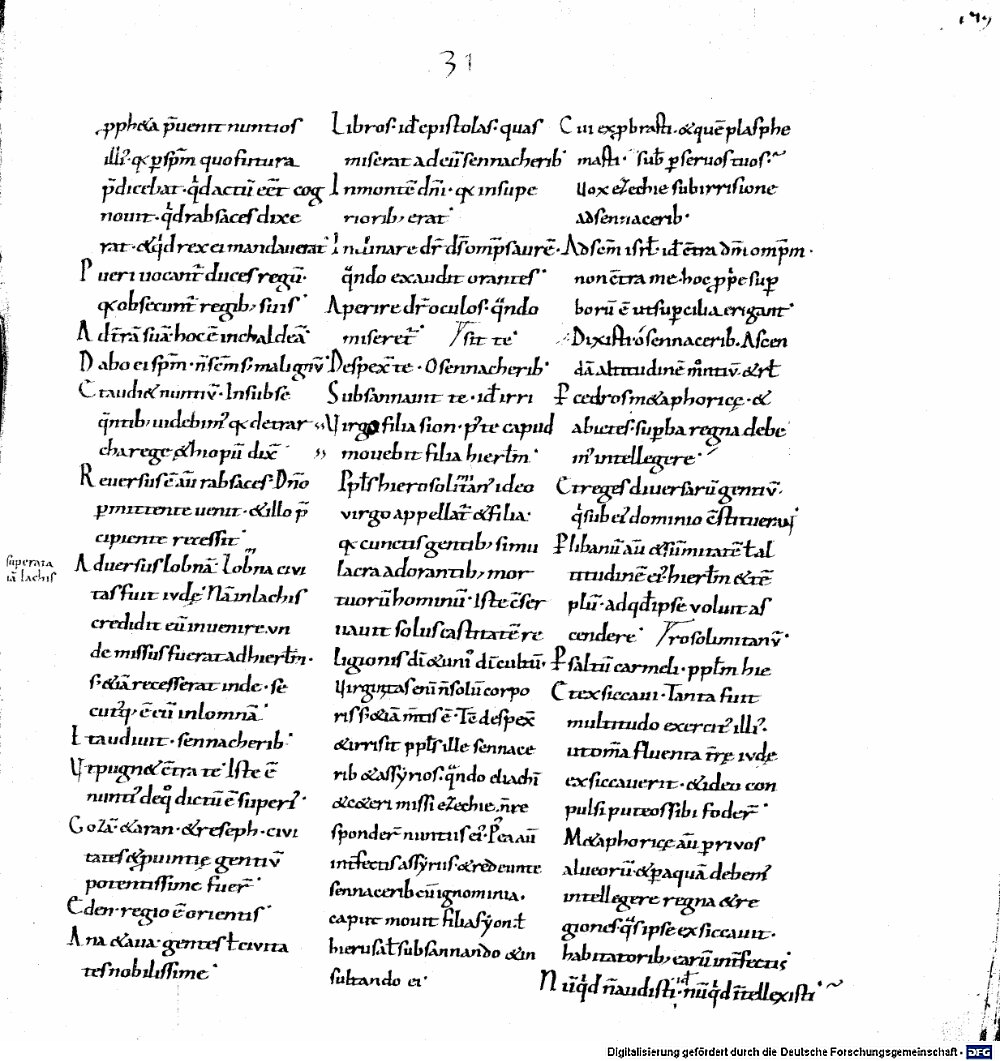 31
ꝓph&a p̄uenit nuntios
illi᾽. qꝫ ꝑ sp̄m quo futura
p̄dicebat. qd̄ actū eēt cog
nouit. qd̄ rabsaces dixe
rat. & qd̄ rex ei mandauerat.
Pueri uocant̄ duces regū.
qꝫ obsecunt̄ regibꝫ suis.
Ad t̄rā suā. hoc ē in chaldeā.
Dabo ei sp̄m. n̄ sēm sꝫ malignū.
Et audi& nuntiū. In subse
q̄ntibꝫ uidebim᾽ qꝫ de thar
cha rege &hiopū dix̄
Reuersus ē aū rabsaces. Dn̄o
ꝑmittente uenit. & illo p̄
cipiente recessit.
superata
iā lachis
Aduersus lobnā. Lobna ciui
tas fuit iudę. Nā in lachis
credidit eū inuenire. un
de missus fuerat ad hierłm.
sꝫ &iā recesserat inde. se
cutusq ē eū in lomnā.
Et audiuit. sennacherib.
Ut pugn& ꝯtra te. Iste ē
nunti᾽ de q̊ dictū ē superi᾽.
Gozā. & aran. & reseph. ciui
tates & ꝓuintię gentiū
potentissime fuer̄.
Eden. regio ē orientis.
Ana & aua. gentes ł ciuita
tes nobilissime.
Libros. id ē epistolas. quas
miserat ad eū sennacherib.
In monte dn̄i. qꝫ in supe
rioribꝫ erat.
Inclinare dr̄ ds̄ omp̄s aurē.
q̄ndo exaudit orantes.
Aperire dr̄ oculos. q̄ndo
miseret̄. sit te.
Despex̄ te. O sennacherib.
Subsannauit te. id ē irri
Uirgo filia sion. p᾽ te caput
mouebit filia hierłm.
Ppłs hierosolimitan᾽ ideo
uirgo appellat̄ & filia.
qꝫ cunctis gentibꝫ simu
lacra adorantibꝫ mor
tuorū hominū. Iste ē ser
uauit solus castitatē re
ligionis di & uni᾽ di cultū.
Uirginitas enī n̄ solū corpo
ris sꝫ &iā m̄tis ē. Te despex̄
& irrisit ppłs ille sennace
rib & assyrios. q̄ndo eliachī
& c&eri missi ezechię. n̄ re
sponder̄ nuntiis ei᾽. Postea aū
int̄fectis assyriis & redeunte
sennacerib cū ignominia.
caput mouit filia syon. ł
hierusałm subsannando & in
sultando ei.
Cui exꝓbrasti. & quē plasphe
masti. sub̄ ꝑ seruos tuos.
Uox ezechie sub irrisione
ad sennacerib.
Ad sēm isrł. id ē ꝯtra dm̄ omp̄m.
non ꝯtra me. hoc ppe suꝑ
borū ē ut suꝑcilia erigant.
Dixisti ó sennacerib. Ascen
dā altitudinē m̊ntiū. & rł
Pcedros m&aphoricę. &
abietes. suꝑba regna debe
m᾽ intellegere.
Et reges diuersarū gentiū.
qi sub ei᾽ dominio ꝯstituerunt
P libanū aū & sūmitatē ł al
titudinē ei᾽ hierłm & tē
plū. ad qd̄ ipse uoluit as
cendere. rosolimitanū.
P saltū carmeli. ppłm hie
Et exsiccaui. Tanta fuit
multitudo exercit᾽ illi᾽.
ut om̄a fluenta t̄rę iudę
exsiccauerit. & ideo con
pulsi puteos sibi foder̄.
M&aphorice aū ꝑ riuos
alueorū. & ꝑ aquā debem᾽
intellegere regna & re
giones. qs ipse exsiccauit.
habitatoribꝫ earū int̄fectis.
Nūqd n̄ audisti. id ē nūqd īntellexisti.
Digitalisierung gefördert durch die Deutsche Forschungsgemeinschaft - DFG